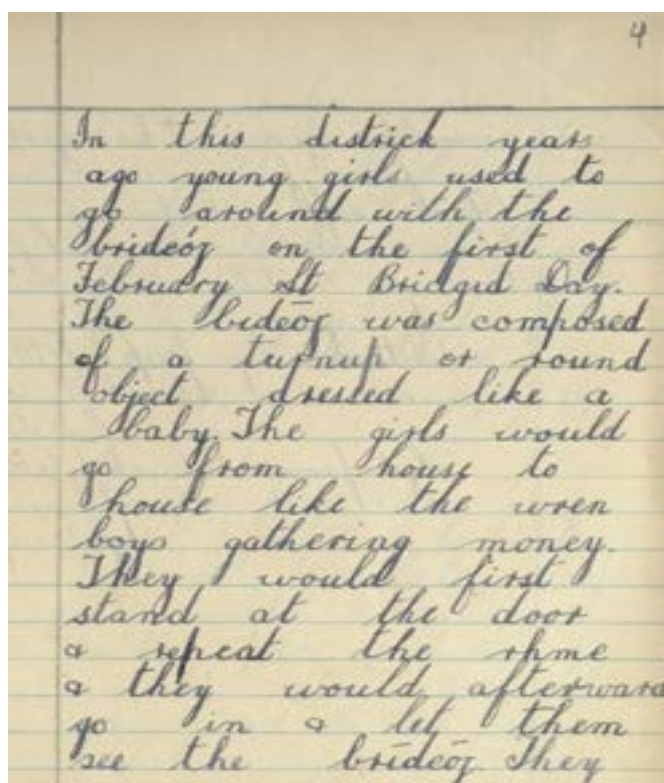 4
In this districk years
ago young girls used to
go around with the
brídeóg on the first of
February St Bridgid Day.
The bídeóg was composed
of a turnup or round
object dressed like a
baby. The girls would
go from house to
house like the wren
boys gathering money.
They would first
stand at the door
& repeat the rhme
& they would afterward
go in & let them
see the brídeóg They